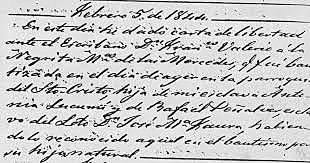 Febrero 5. de 1844.
En este dia he dado carta de libertad
ante el Escribano Dn. Juan Valerio a la
Negrita Ma. de las Mercedes, q. fué bau
tizada en el dia de ayer en la parroquia
del Sto. Cristo, hija de mi esclava Anto
nia Lucumí y de Rafael Peñalver, escla
vo del Ldo. Dn. José Ma. habien
dola reconocido aquel en el bautismo por
su hija natural.